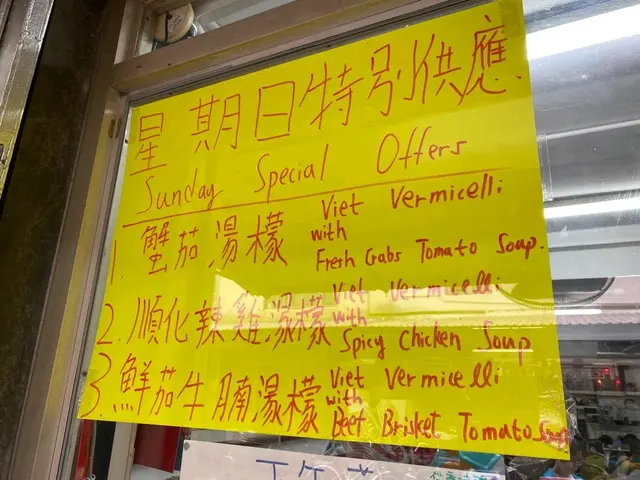 星期日特別供應
Sunday Special Offers
1. 蟹茄湯檬 Viet Vermicelli
with
Fresh Crabs Tomato Soup.
2. 順化辣雞湯檬 Viet Vermicelli
with
Spicy Chicken Soup
3. 鮮茄牛腩湯檬 Viet Vermicelli
with
Beef Brisket Tomato Soup